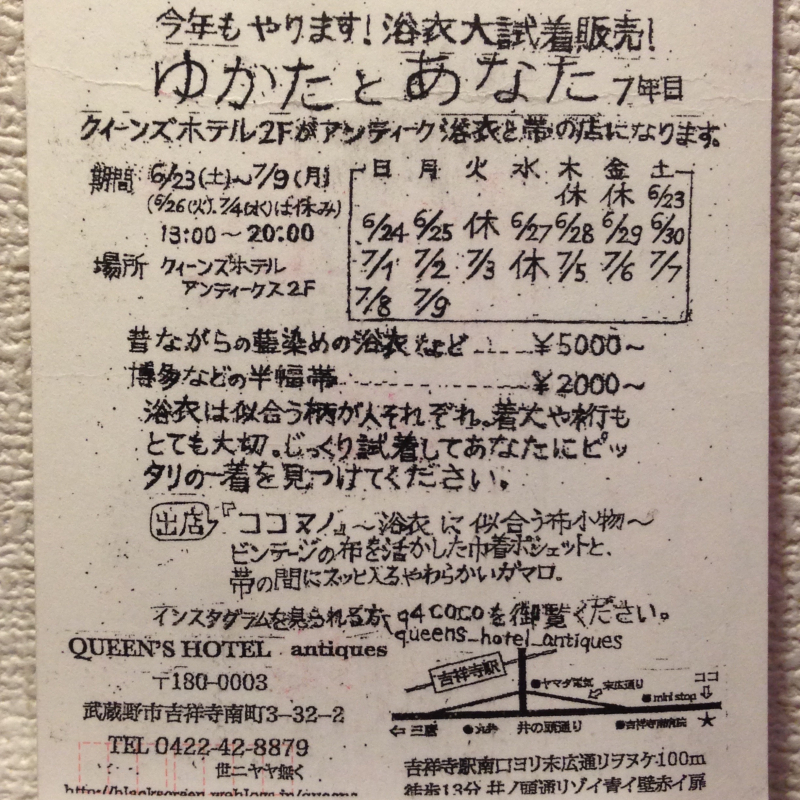 今年もやります!浴衣大試着販売!
ゆかたとあなた 7年目
クイーンズホテル2Fがアンティーク浴衣と帯の店になります。
期間 6/23(土)~7/9(月)
(6/26(火).7/4(水)は休み)
13:00~20:00
場所 クィーンズホテル
アンティークス2F
日 月 火 水 木 金 土
休 休 6/23
6/24 6/25 休 6/27 6/28 6/29 6/30
7/1 7/2 7/3 休 7/5 7/6 7/7
7/8 7/9
昔ながらの藍染めの浴衣など……¥5000~
博多などの半幅帯……¥2000~
浴衣は似合う柄が人それぞれ。着丈や裄も
とても大切。じっくり試着してあなたにピッ
タリの一着を見つけてください。
出店 『ココヌノ』~浴衣に似合う布小物~
ビンテージの布を活かした巾着ポシェットと、
帯の間にスッと入るやわらかいガマ口。
インスタグラムを見られる方、q4cocoを御覧ください。
queens_hotel_antiques
QUEEN'S HOTEL antiques
〒180-0003
武蔵野市吉祥寺南町3-32-2
TEL 0422-42-8879
世ニヤヤ無く
吉祥寺駅
●ヤマダ電気
末広通り
●mini stop
ココ
⇩
⇦三鷹
●丸井
井の頭通り
●吉祥寺南病院
★
吉祥寺駅南口ヨリ末広通リヲヌケ100m
徒歩13分 井ノ頭通リゾイ青イ壁赤イ扉